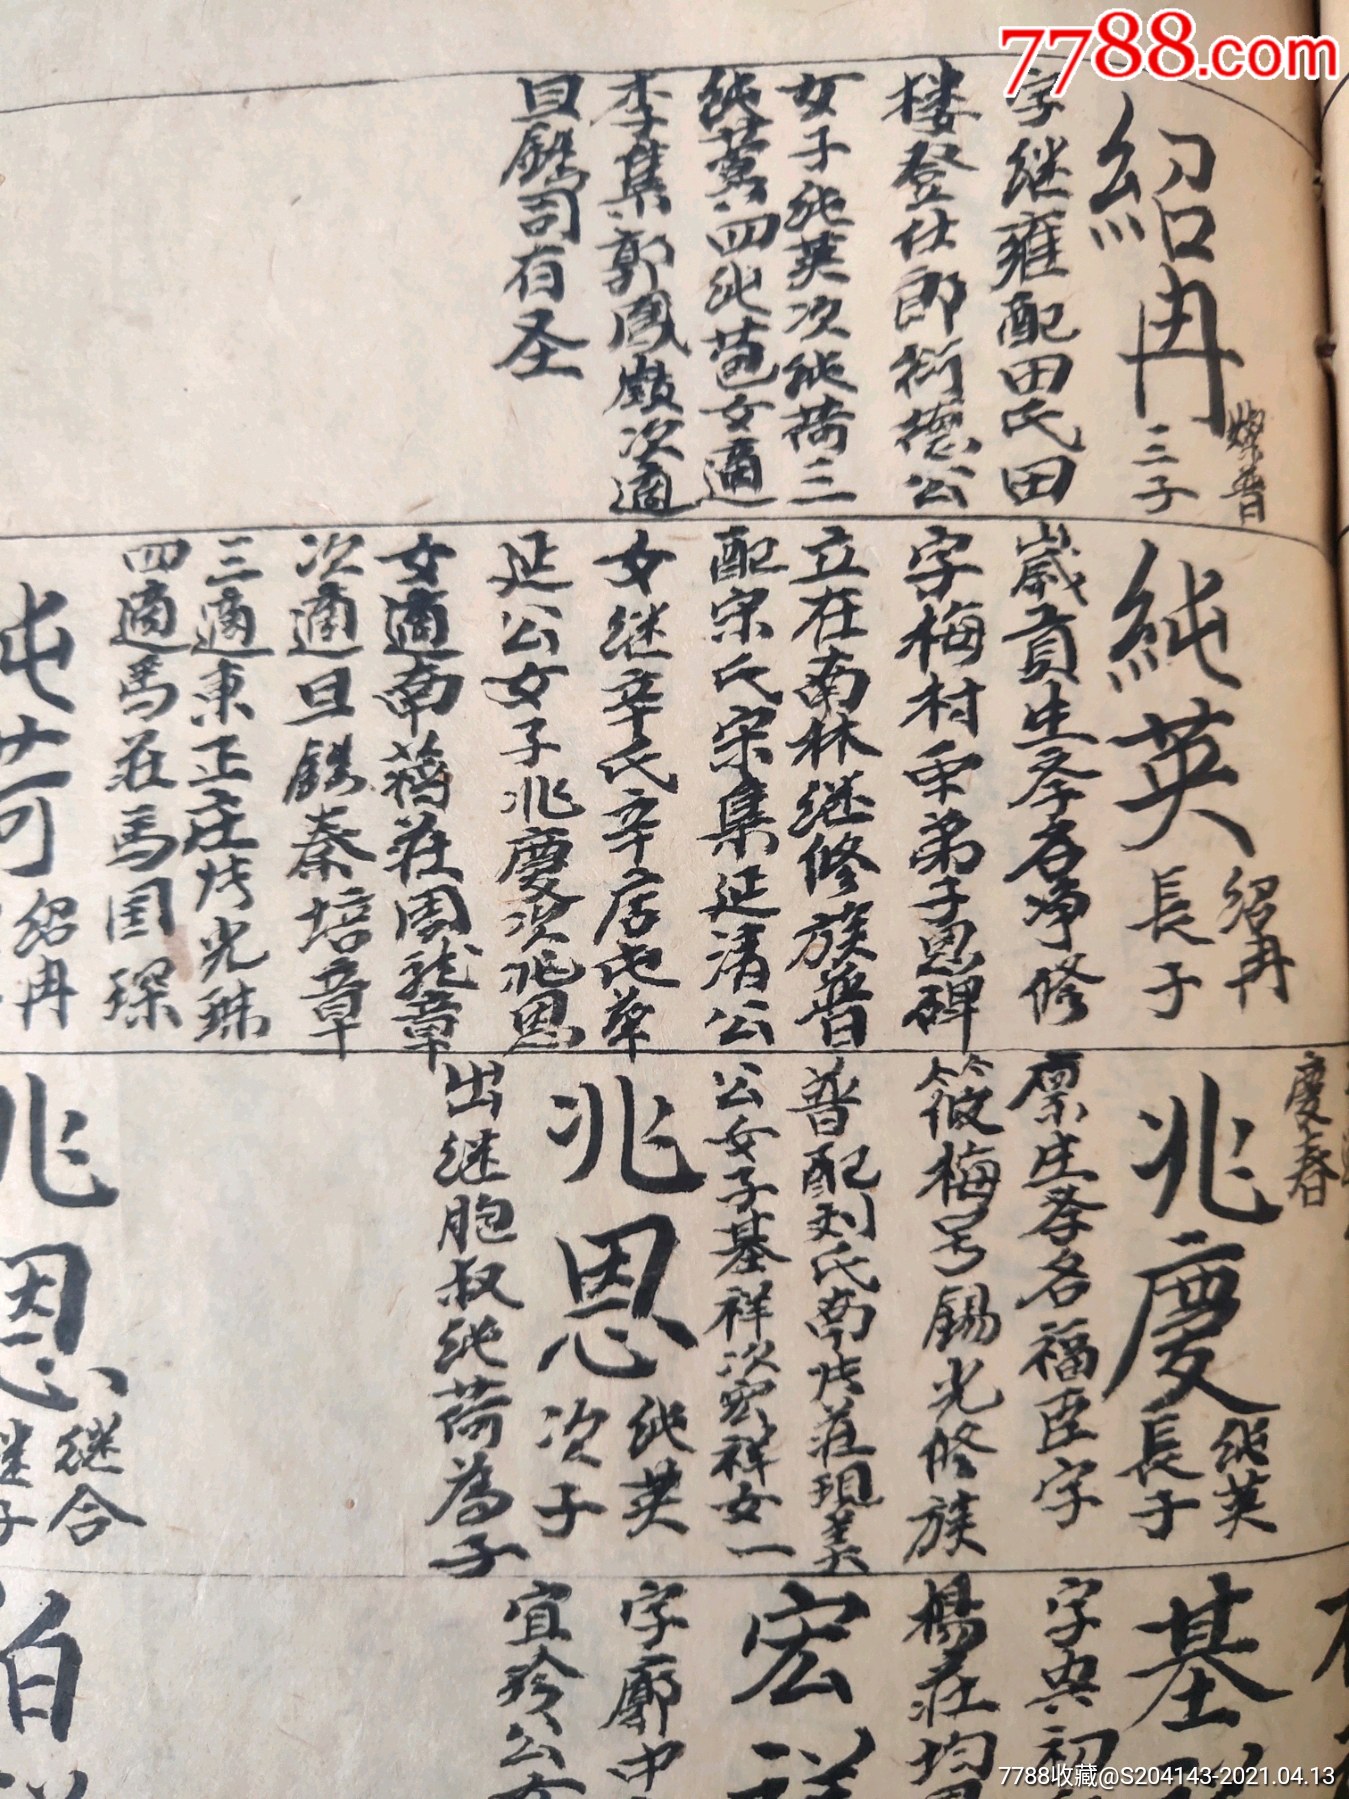 7788.com
紹冉
燦普
三子
字继雍配田氏田
楼登仕郎衍德公
女子纯英次纯荷三
纯蓂四纯苞女適
李集郭鳳巖次適
旦鎮司有圣
純英
绍冉
長子
歲貢生庠名净修
字梅村受弟子恩碑
立在南林继修族普
配宗氏宗集延清公
女继辛氏辛店屯萃
延公女子兆慶次兆恩
女適南蒋莊周龙章
次適旦鎮秦培章
三適東正庄炉光琳
四適馬莊馬国琛
纯荷
绍冉
慶春
兆慶
纯英
長子
廪生庠名福臣字
筱梅号錫光修族
普配刘氏南炉莊現美
公女子基祥次宏祥女一
兆恩
纯英
次子
出继胞叔纯荷為子
兆恩
继合
继子
基祥
字典初
楊莊均
宏祥
字廓中
宜珍公女
7788收藏@S204143-2021.04.13